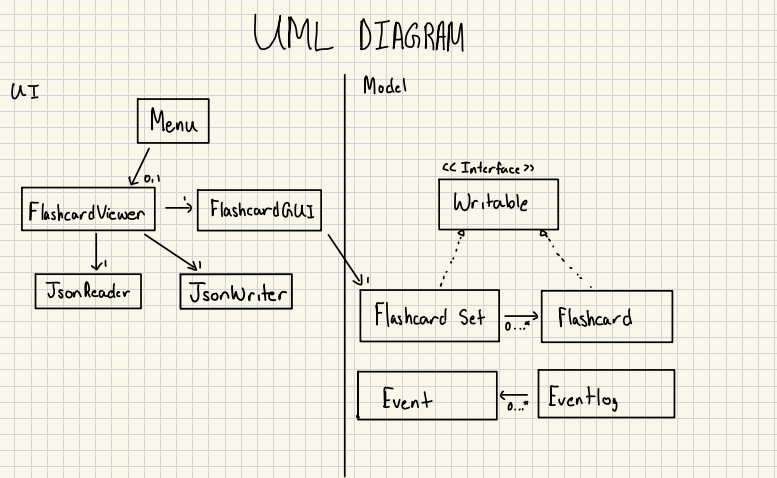 UML DIAGRAM
UI
Menu
0,1
FlashcardViewer
1
FlashcardGUI
1
JsonReader
1
JsonWriter
Model
<< Interface >>
Writable
1
Flashcard Set
0...*
Flashcard
Event
0...*
Eventlog